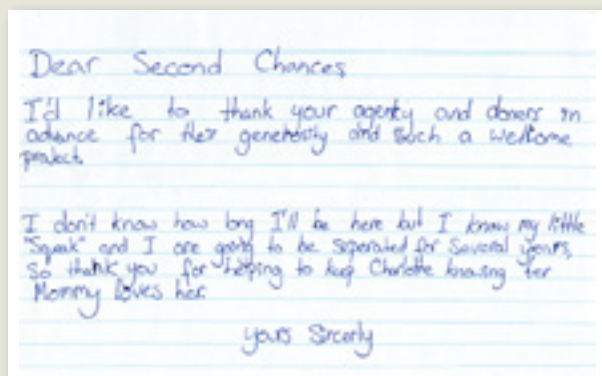 Dear Second Chances
I'd like to thank your agenty and donors in
advance for ther generosity and such a welcome
project.
I don't know how long I'll be here but I know my little
"Squeak" and I are going to be seperated for several years,
So thank you for helping to keep Charlotte knowing her
Mommy loves her.
yours Sincerly